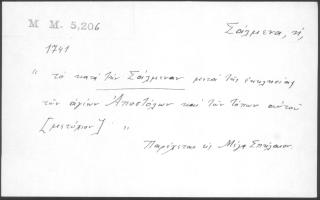 M M. 5,206
Σάλμενα, ἡ,
1741
“ τὸ κατὰ τὴν Σάλμεναν μετὰ τῆς ἐκκλησίας
τῶν ἁγίων Ἀποστόλων καὶ τὸν τόπον αὐτοῦ
[μετόχιον] ”
Παρέχεται εἰς Μέγα Σπήλαιον.